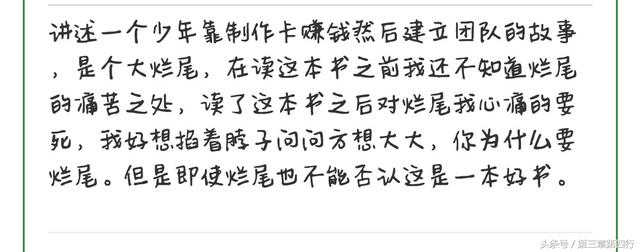 讲述一个少年靠制作卡赚钱然后建立团队的故事
，是个大烂尾，在读这本书之前我还不知道烂尾
的痛苦之处，读了这本书之后对烂尾我心痛的要
死，我好想掐着脖子问问方想大大，你为什么要
烂尾。但是即使烂尾也不能否认这是一本好书。
头条号 / 第三章第四行